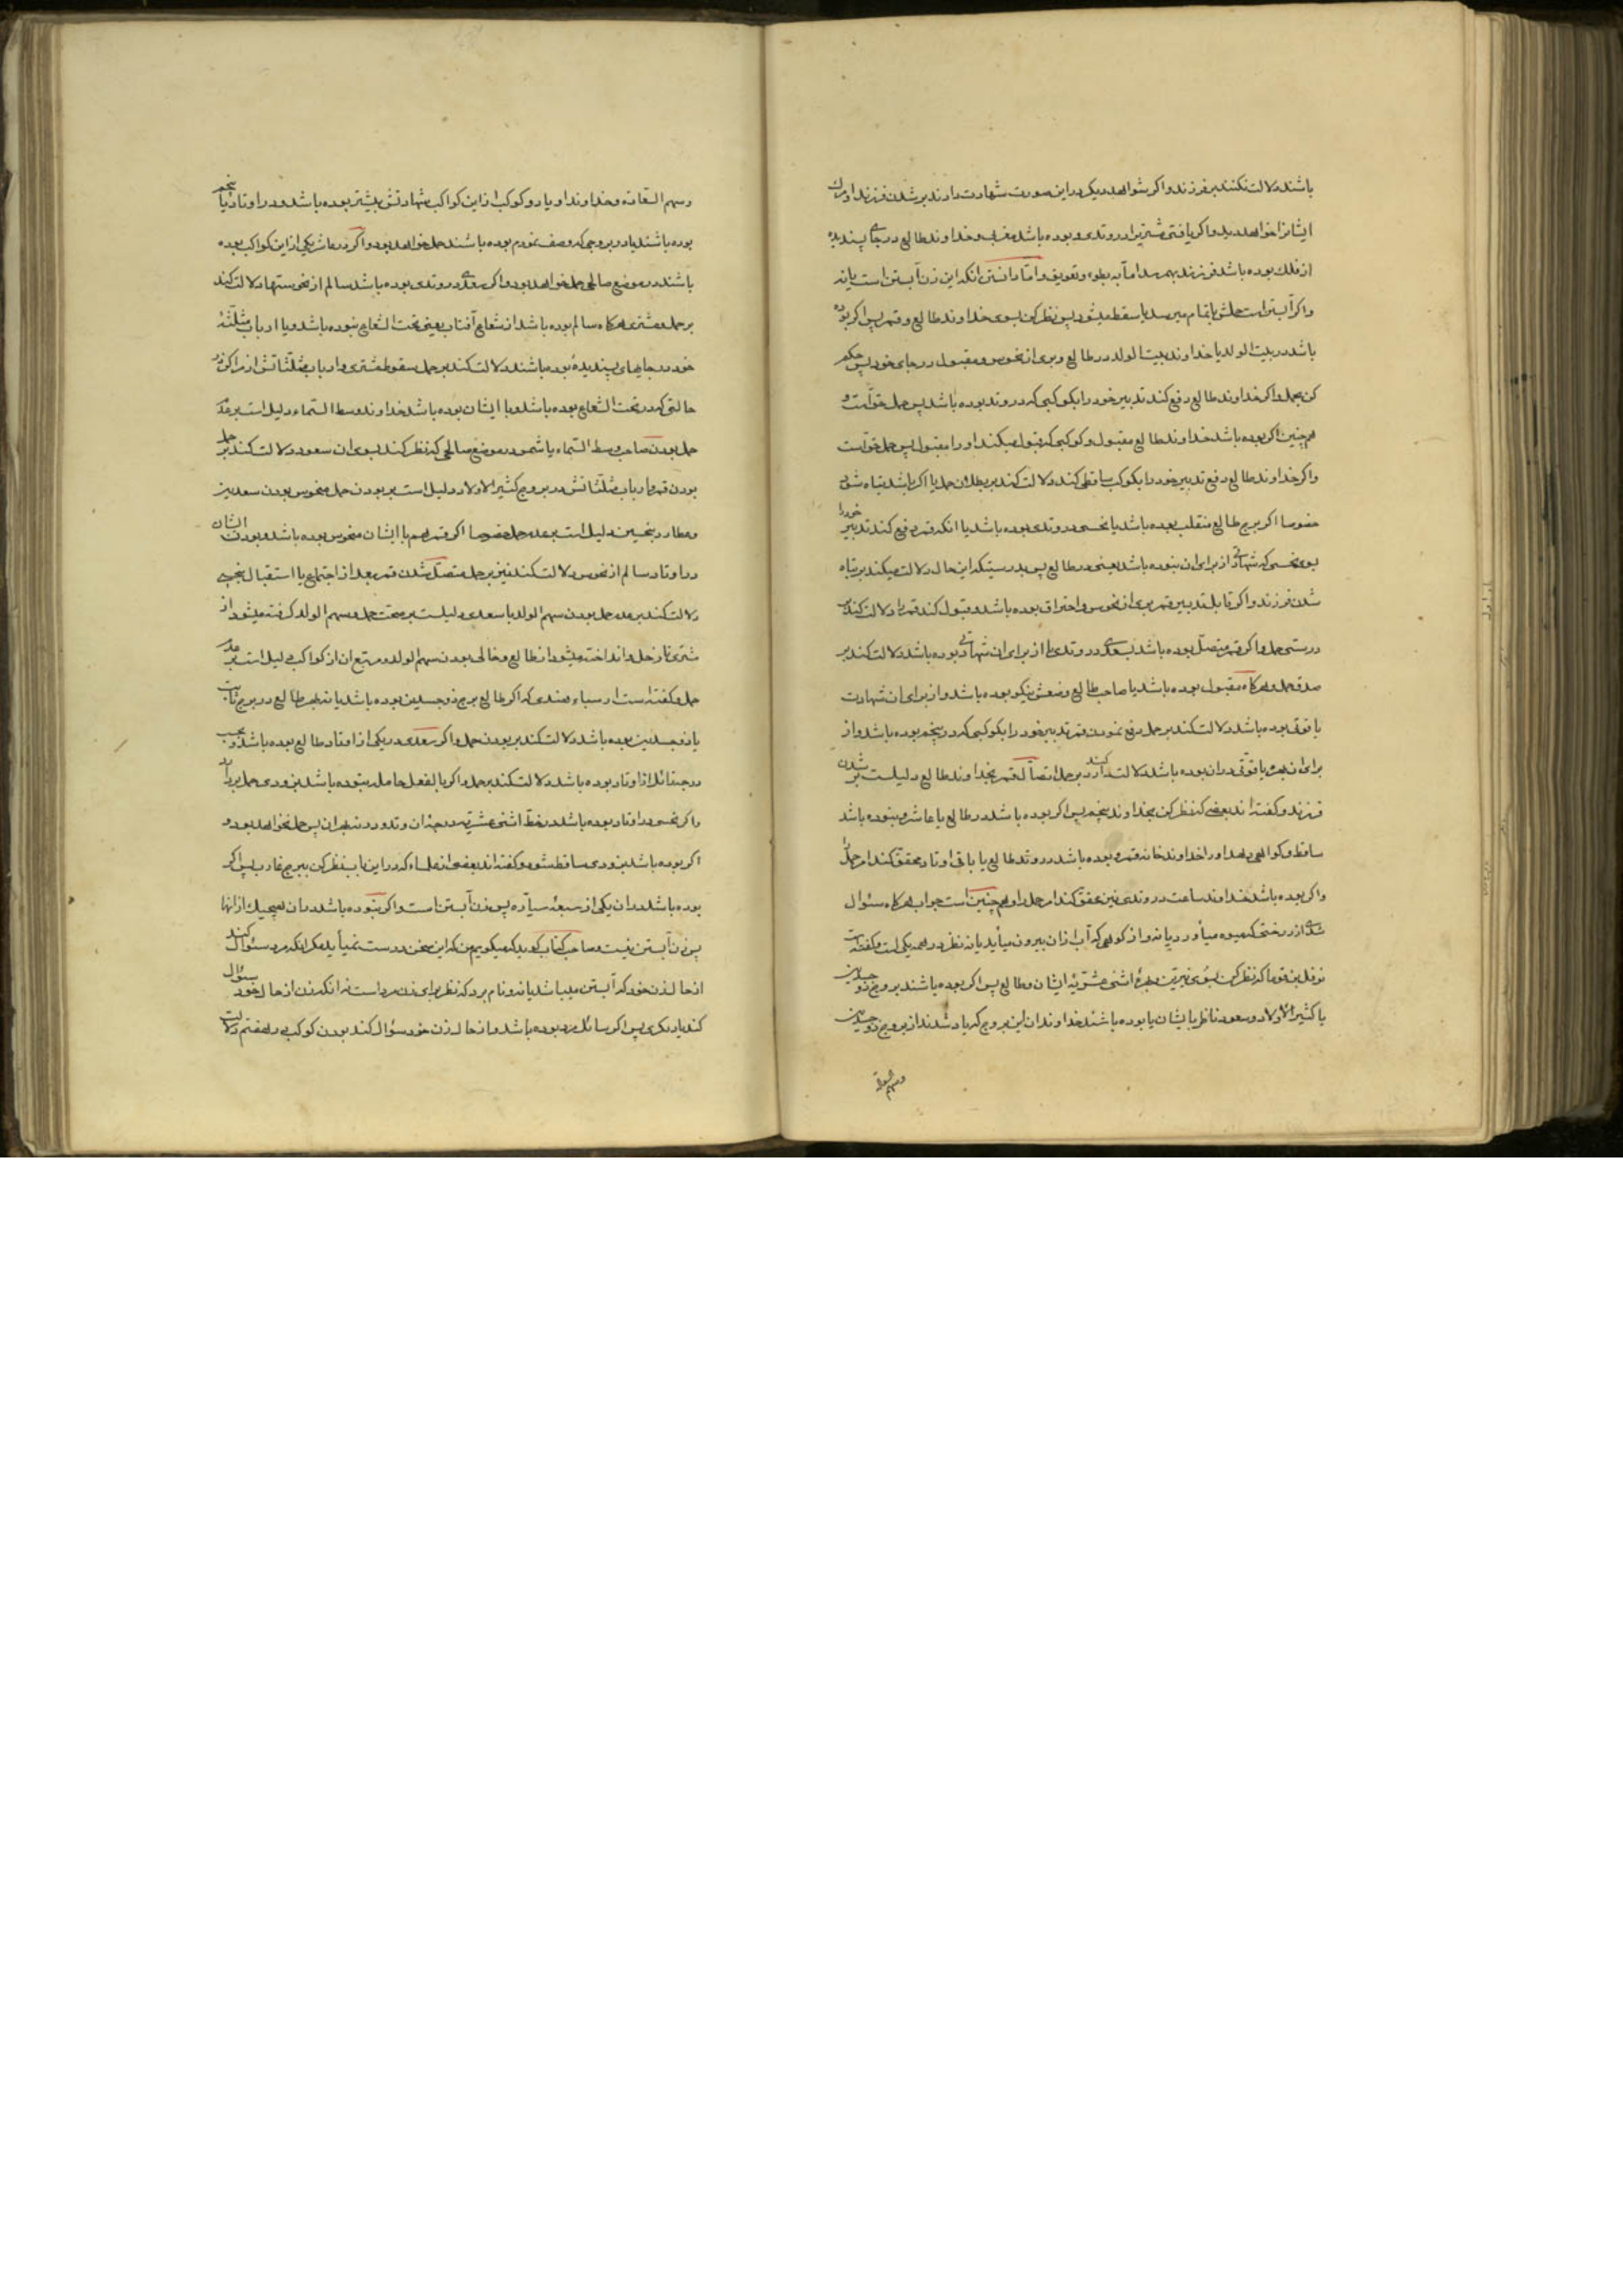 باشند دلالت نکنند بر فرزند و اکر شواهد دیکر در این صورت شهادت دادند بر شدن فرزند او مرك
ایشانرا خواهد دید و اکر یافتی مشتریرا در وتدی و بوده باشد مغربی و خداوند طالع در جای پسندیده
از فلك بوده باشد فرزند بهم رسد اما به بطوء و تعویق و اما دانستن انکه این زن آبستن است یا نه
واکر آبستن است حملش باتمام میرسد یا سقط میشود پس نظر کن بسوی خداوند طالع و قمر پس اکر بوده
باشد در بیت الولد یا خداوند بیت الولد در طالع و بری از نحوس و مقبول در جای خود پس حکم
کن بحمل و اکر خداوند طالع دفع کند تدبیر خود را بکوکبی که در وتد بوده باشد پس حمل حق است و
همچنین اکر بوده باشد خداوند طالع مقبول و کوکبی که قبول میکند او را مقبول پس حمل حق است
واکر خداوند طالع دفع تدبیر خود را بکوکب ساقطی کند دلالت کند بر بطلان حمل یا اکر باشد تباه شود
خصوصا اکر برج طالع منقلب بوده باشد یا نحسی در وتدی بوده باشد یا انکه قمر دفع کند تدبیر خود را
بسوی نحسی که شهادتی از برای ان نبوده باشد یعنی در طالع پس بدرستیکه این حال دلالت میکند بر تباه
شدن فرزند و اکر قابل تدبیر قمر بری از نحوس و احتراق بوده باشد و قبول کند قمر را دلالت کند بر
درستی حمل و اکر قمر متصل بوده باشد بسعدی در وتدی یا از برای ان شهادتی بوده باشد دلالت کند بر
صدق حمل و هرکاه مقبول بوده باشد یا صاحب طالع وضعش نیکو بوده باشد و از برای ان شهادت
یا قوتی بوده باشد دلالت کند بر حمل دفع نمودن قمر تدبیر خود را بکوکبی که در پنجم بوده باشد و از
برای ان بهره یا قوتی در ان بوده باشد دلالت کند بر حمل اتصال قمر بخداوند طالع دلیلست بر شدن
فرزند و کفته اند بعضی که نظر کن بخداوند پنجم پس اکر بوده باشد در طالع یا عاشر و نبوده باشد
ساقط و کواهی بدهد او را خداوند خانه قمر و بوده باشد در وتد طالع یا باقی اوتاد محقق کند امر حمل را
واکر بوده باشد خداوند ساعت در وتدی نیز محقق کند امر حمل را و همچنین است جواب هرکاه سئوال
شدی از درختی که میوه میآورد یا نه و از کوهی که آب از ان بیرون میآید یا نه نظر در همه یکی است و کفته است
نوفل بن قوما که نظر کن بسوی نیرین و بهره اثنی عشریه ایشان و طالع پس اکر بوده باشند بروج ذو جسدین
یا کثیر الاولاد و سعود ناظر بایشان یا بوده باشند خداوندان این بروج که یاد شدند از بروج ذو جسدین
وسهم السعادة
وسهم السعاده و خداوند او یا دو کوکب از این کواکب شهادتش بیشتر بوده باشد و در اوتاد یا پنجم
بوده باشند یا در بروجی که وصف نمودم بوده باشند حمل خواهد بود و اکر در عاشر یکی از این کواکب بوده
باشند در موضع صالحی حمل خواهد بود و اکر سعدی در وتدی بوده باشد سالم از نحوستها دلالت کند
بر حمل و مشتری هرکاه سالم بوده باشد از شعاع آفتاب یعنی تحت الشعاع نبوده باشد و یا ارباب مثلثه
خود در جایهای پسندیده بوده باشند دلالت کند بر حمل سقوط مشتری و ارباب مثلثاتش از مراکز در
حالتی که در تحت الشعاع بوده باشد و یا ایشان بوده باشد خداوند وسط السماء دلیل است بر عدم
حمل بودن صاحب وسط السماء یا شمس در موضع صالحی که نظر کند بسوی ان سعود دلالت کند بر حمل
بودن قمر و ارباب مثلثاتش در بروج کثیر الاولاد دلیل است بر بودن حمل منحوس بودن سعدین
و عطارد بنحسین دلیل است بر عدم حمل خصوصا اکر قمر هم با ایشان منحوس بوده باشد و بودن ایشان
در اوتاد سالم از نحوس دلالت کند نیز بر حمل متصل شدن قمر بعد از اجتماع یا استقبال بنحسی
دلالت کند بر عدم حمل بودن سهم الولد با سعدی دلیلست بر صحت حمل و سهم الولد کرفته میشود از
مشتری تا زحل و انداخته میشود از طالع و خالی بودن سهم الولد و مربع ان از کواکب دلیل است بر عدم
حمل و کفته است ارسباء هندی که اکر طالع برج ذو جسدین بوده باشد یا نه بهر طالع در برج ثابت
یا ذو جسدین بوده باشد دلالت کند بر بودن حمل و اکر سعدی در یکی از اوتاد طالع بوده باشد و نحسی
در جنب زائل از اوتاد بوده باشد دلالت کند بر حمل و اکر بالفعل حامله نبوده باشد بزودی حمل بردارد
واکر نحسی در اوتاد بوده باشد در خط اثنی عشریه و در حد ان وتد و در نه بهر ان پس حمل نخواهد بود و
اکر بوده باشد بزودی ساقط شود و کفته اند بعضی از علماء که در این باب نظر کن ببرج غارب پس اکر
بوده باشد در ان یکی از سبعه سیاره پس زن آبستن است و اکر نبوده باشد در ان هیچیك از انها
پس زن آبستن نیست و صاحب کتاب کوید که میکویم من که این سخن درست نمیآید مکر انکه مرد سئوال کند
از حال زن خود که آبستن میباشد یا نه و نام برد که نظر برای زن مرد است نه انکه زن از حال خود سئوال
کند یا دیکری پس اکر سائل مرد بوده باشد و از حال زن خود سؤال کند بودن کوکب در هفتم دلالت